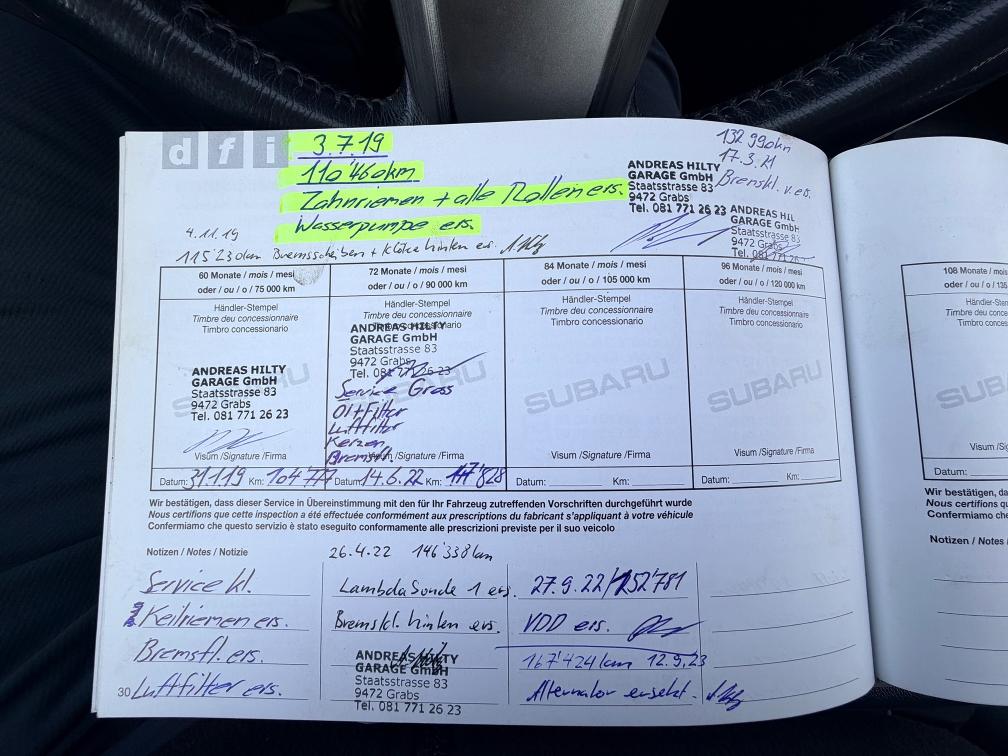 dfi
3.7.19
110'460km
Zahnriemen + alle Rollen ers.
Wasserpumpe ers.
ANDREAS HILTY
GARAGE GmbH
Staatsstrasse 83
9472 Grabs
Tel. 081 771 26 23
132'990km
17.3.21
Bremskl. v. ers.
ANDREAS HIL
GARAGE GmbH
Staatsstrasse 83
9472 Grabs
Tel. 081 771 26
4.11.19
115'230km Bremsscheiben + Klötze hinten er.
60 Monate / mois / mesi
oder / ou / o / 75 000 km
Händler-Stempel
Timbre deu concessionnaire
Timbro concessionario
SUBARU
ANDREAS HILTY
GARAGE GmbH
Staatsstrasse 83
9472 Grabs
Tel. 081 771 26 23
Visum /Signature /Firma
Datum: 31.1.19 Km: 104'777
72 Monate / mois / mesi
oder / ou / o / 90 000 km
Händler-Stempel
Timbre deu concessionnaire
Timbro concessionario
SUBARU
ANDREAS HILTY
GARAGE GmbH
Staatsstrasse 83
9472 Grabs
Tel. 081 771 26 23
Service Gross
Öl+Filter
Luftfilter
Kerzen
Bremsfl.
Visum /Signature /Firma
Datum: 14.6.22 Km: 147'828
84 Monate / mois / mesi
oder / ou / o / 105 000 km
Händler-Stempel
Timbre deu concessionnaire
Timbro concessionario
SUBARU
Visum /Signature /Firma
Datum: Km:
96 Monate / mois / mesi
oder / ou / o / 120 000 km
Händler-Stempel
Timbre deu concessionnaire
Timbro concessionario
SUBARU
Visum /Signature /Firma
Datum: Km:
Wir bestätigen, dass dieser Service in Übereinstimmung mit den für Ihr Fahrzeug zutreffenden Vorschriften durchgeführt wurde
Nous certifions que cette inspection a été effectuée conformément aux prescriptions du fabricant s'appliquant à votre véhicule
Confermiamo che questo servizio è stato eseguito conformamente alle prescrizioni previste per il suo veicolo
Notizen / Notes / Notizie
Service kl.
Keilriemen ers.
Bremsfl. ers.
Luftfilter ers.
30
26.4.22 146'338km
LambdaSonde 1 ers.
Bremskl. hinten ers.
ANDREAS HILTY
GARAGE GmbH
Staatsstrasse 83
9472 Grabs
Tel. 081 771 26 23
27.9.22/152'781
VDD ers.
167'424km 12.9.23
Alternator ersetzt.
108 Monate
oder / ou / o / 135
Händler-Stem
Timbre deu conces
Timbro concess
Visum /Si
Datum:
Wir bestätigen, das
Nous certifions qu
Confermiamo che
Notizen / Notes